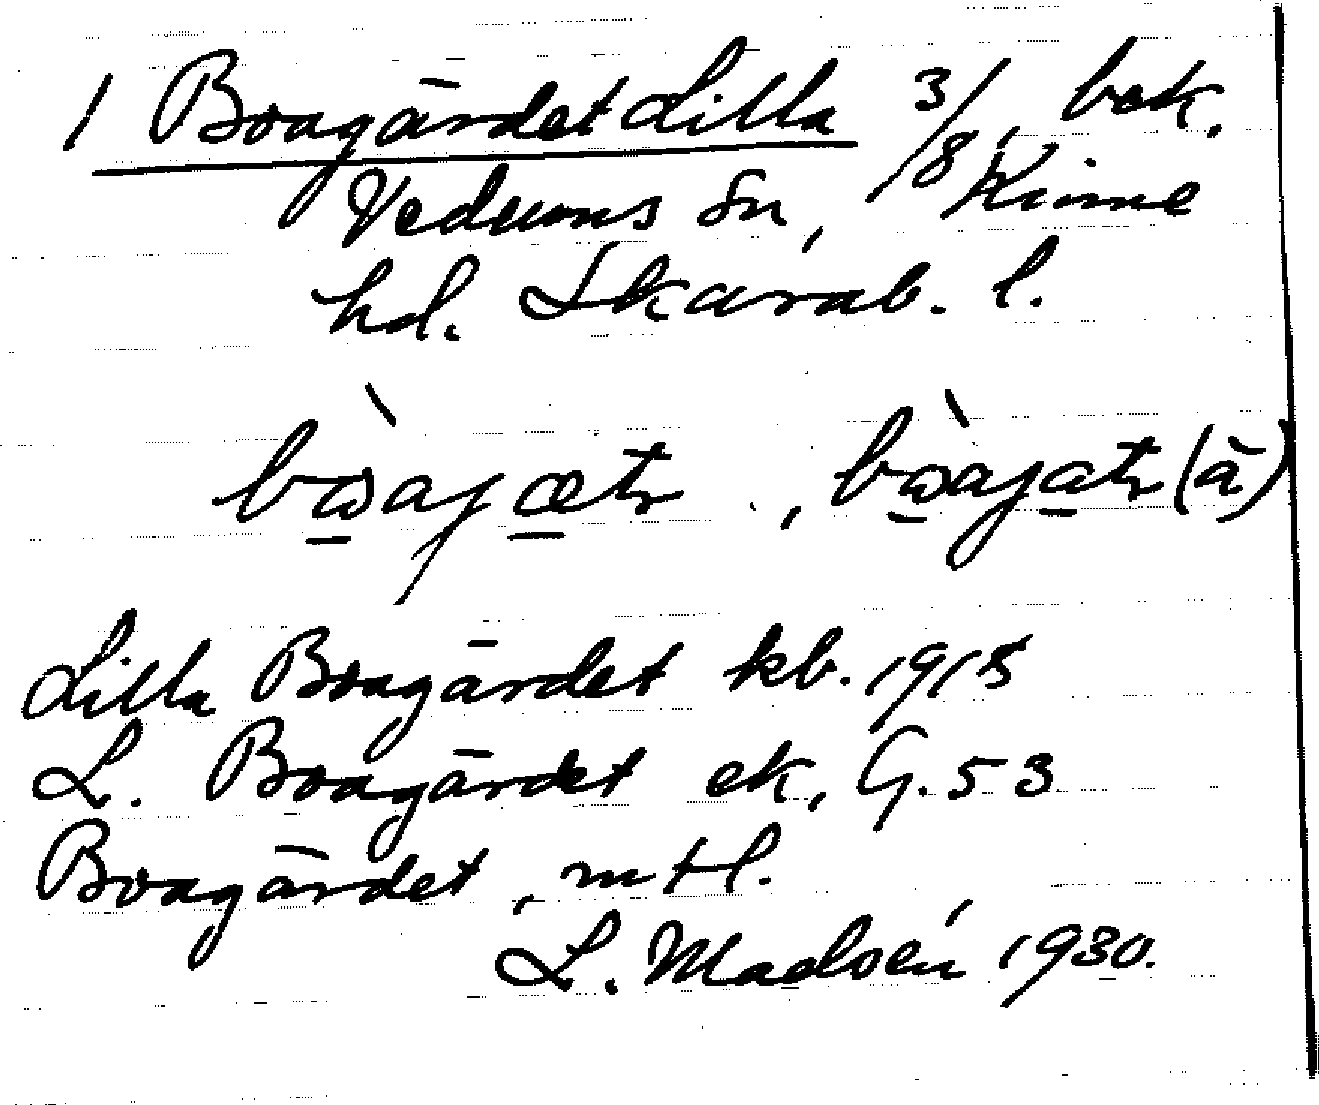 1 Boagärdet Lilla 3/8, bek.
Vedums sn, Kinne
hd. Skarab. l.
bɷajætr, bɷajatr (à)
Lilla Boagärdet kb. 1915
L. Boagärdet ek, G. 53
Boagärdet, mtl.
L. Madsén, 1930.